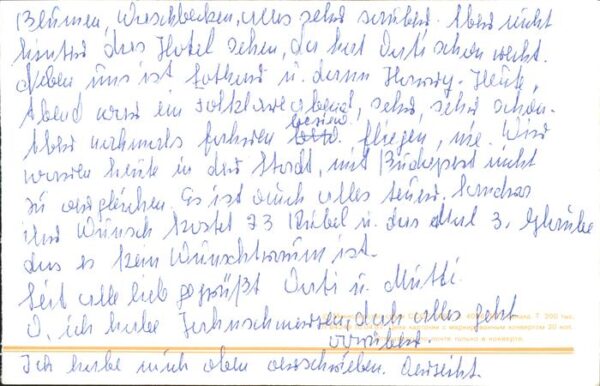 Blumen, Waschbecken, alles sehr sauber. Aber nicht
hinter das Hotel sehen, da hat Vati schon recht.
Neben uns ist u. dann Heute,
Abend war ein Folkloreabend, sehr, sehr schön.
Aber nochmals fahren fliegen, nie. Wir
waren heute in der Stadt, mit Budapest nicht
zu vergleichen. Es ist auch alles teuer.
Ihr Wunsch kostet 73 Rubel u. das Mal 3. Glaube
das es kein Wunschtraum ist.
Seit alle lieb gegrüßt Vati u. Mutti.
O, ich habe Zahnschmerzen, doch alles geht
vorüber.
Ich habe mich oben verschrieben. Verzeiht.